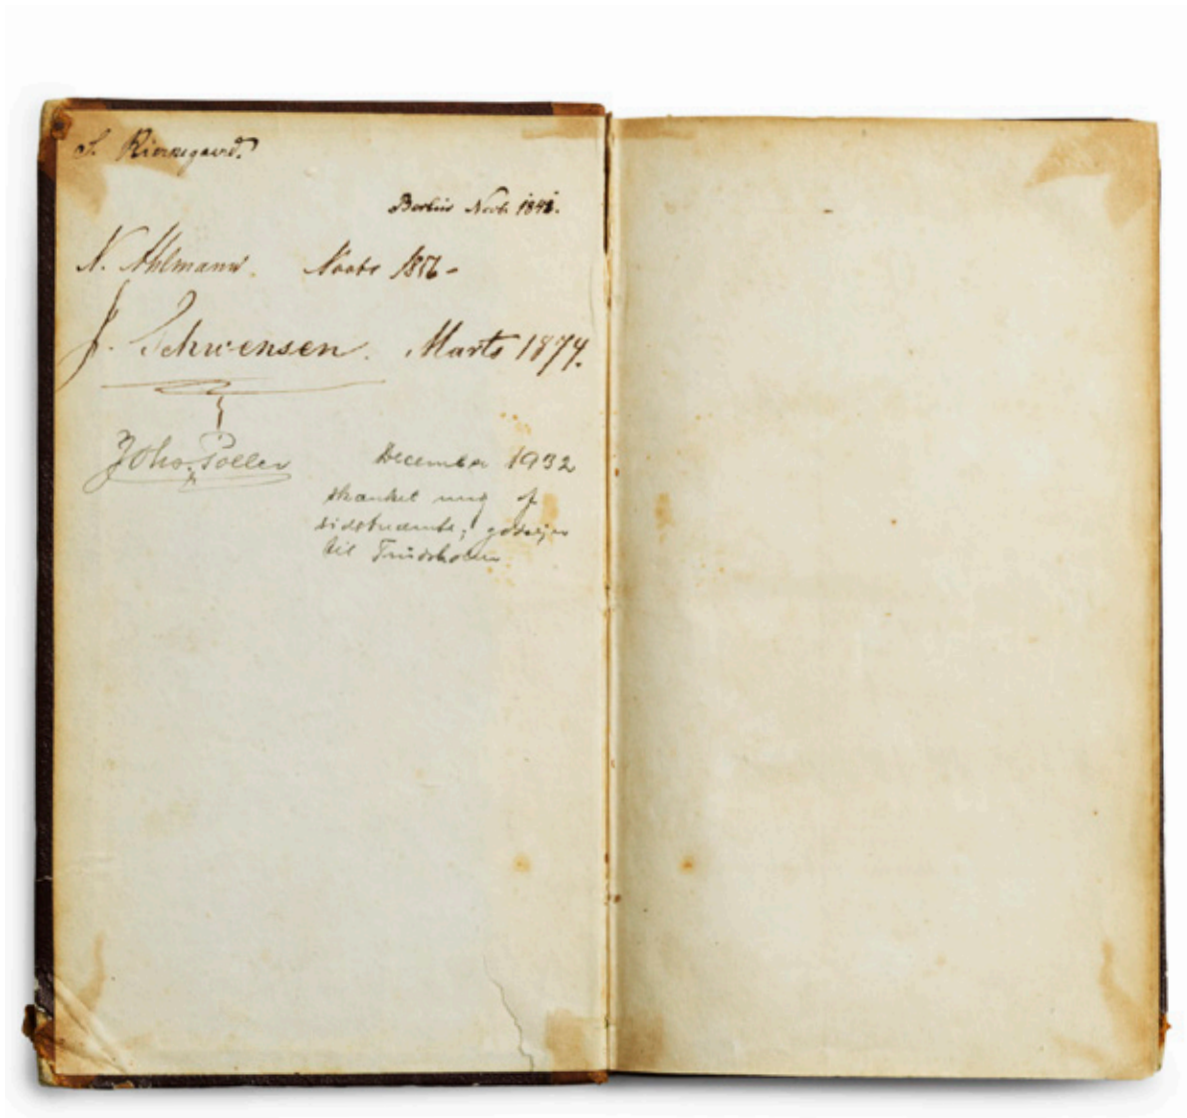 S. Kierkegaard.
Berlin Novb. 1841.
N. Ahlmann. Novbr 1856 -
J. Schwensen. Marts 1874.
Johs. Poller December 1932
skænket mig af
sidstnævnte; godsejer
til Trudsholm